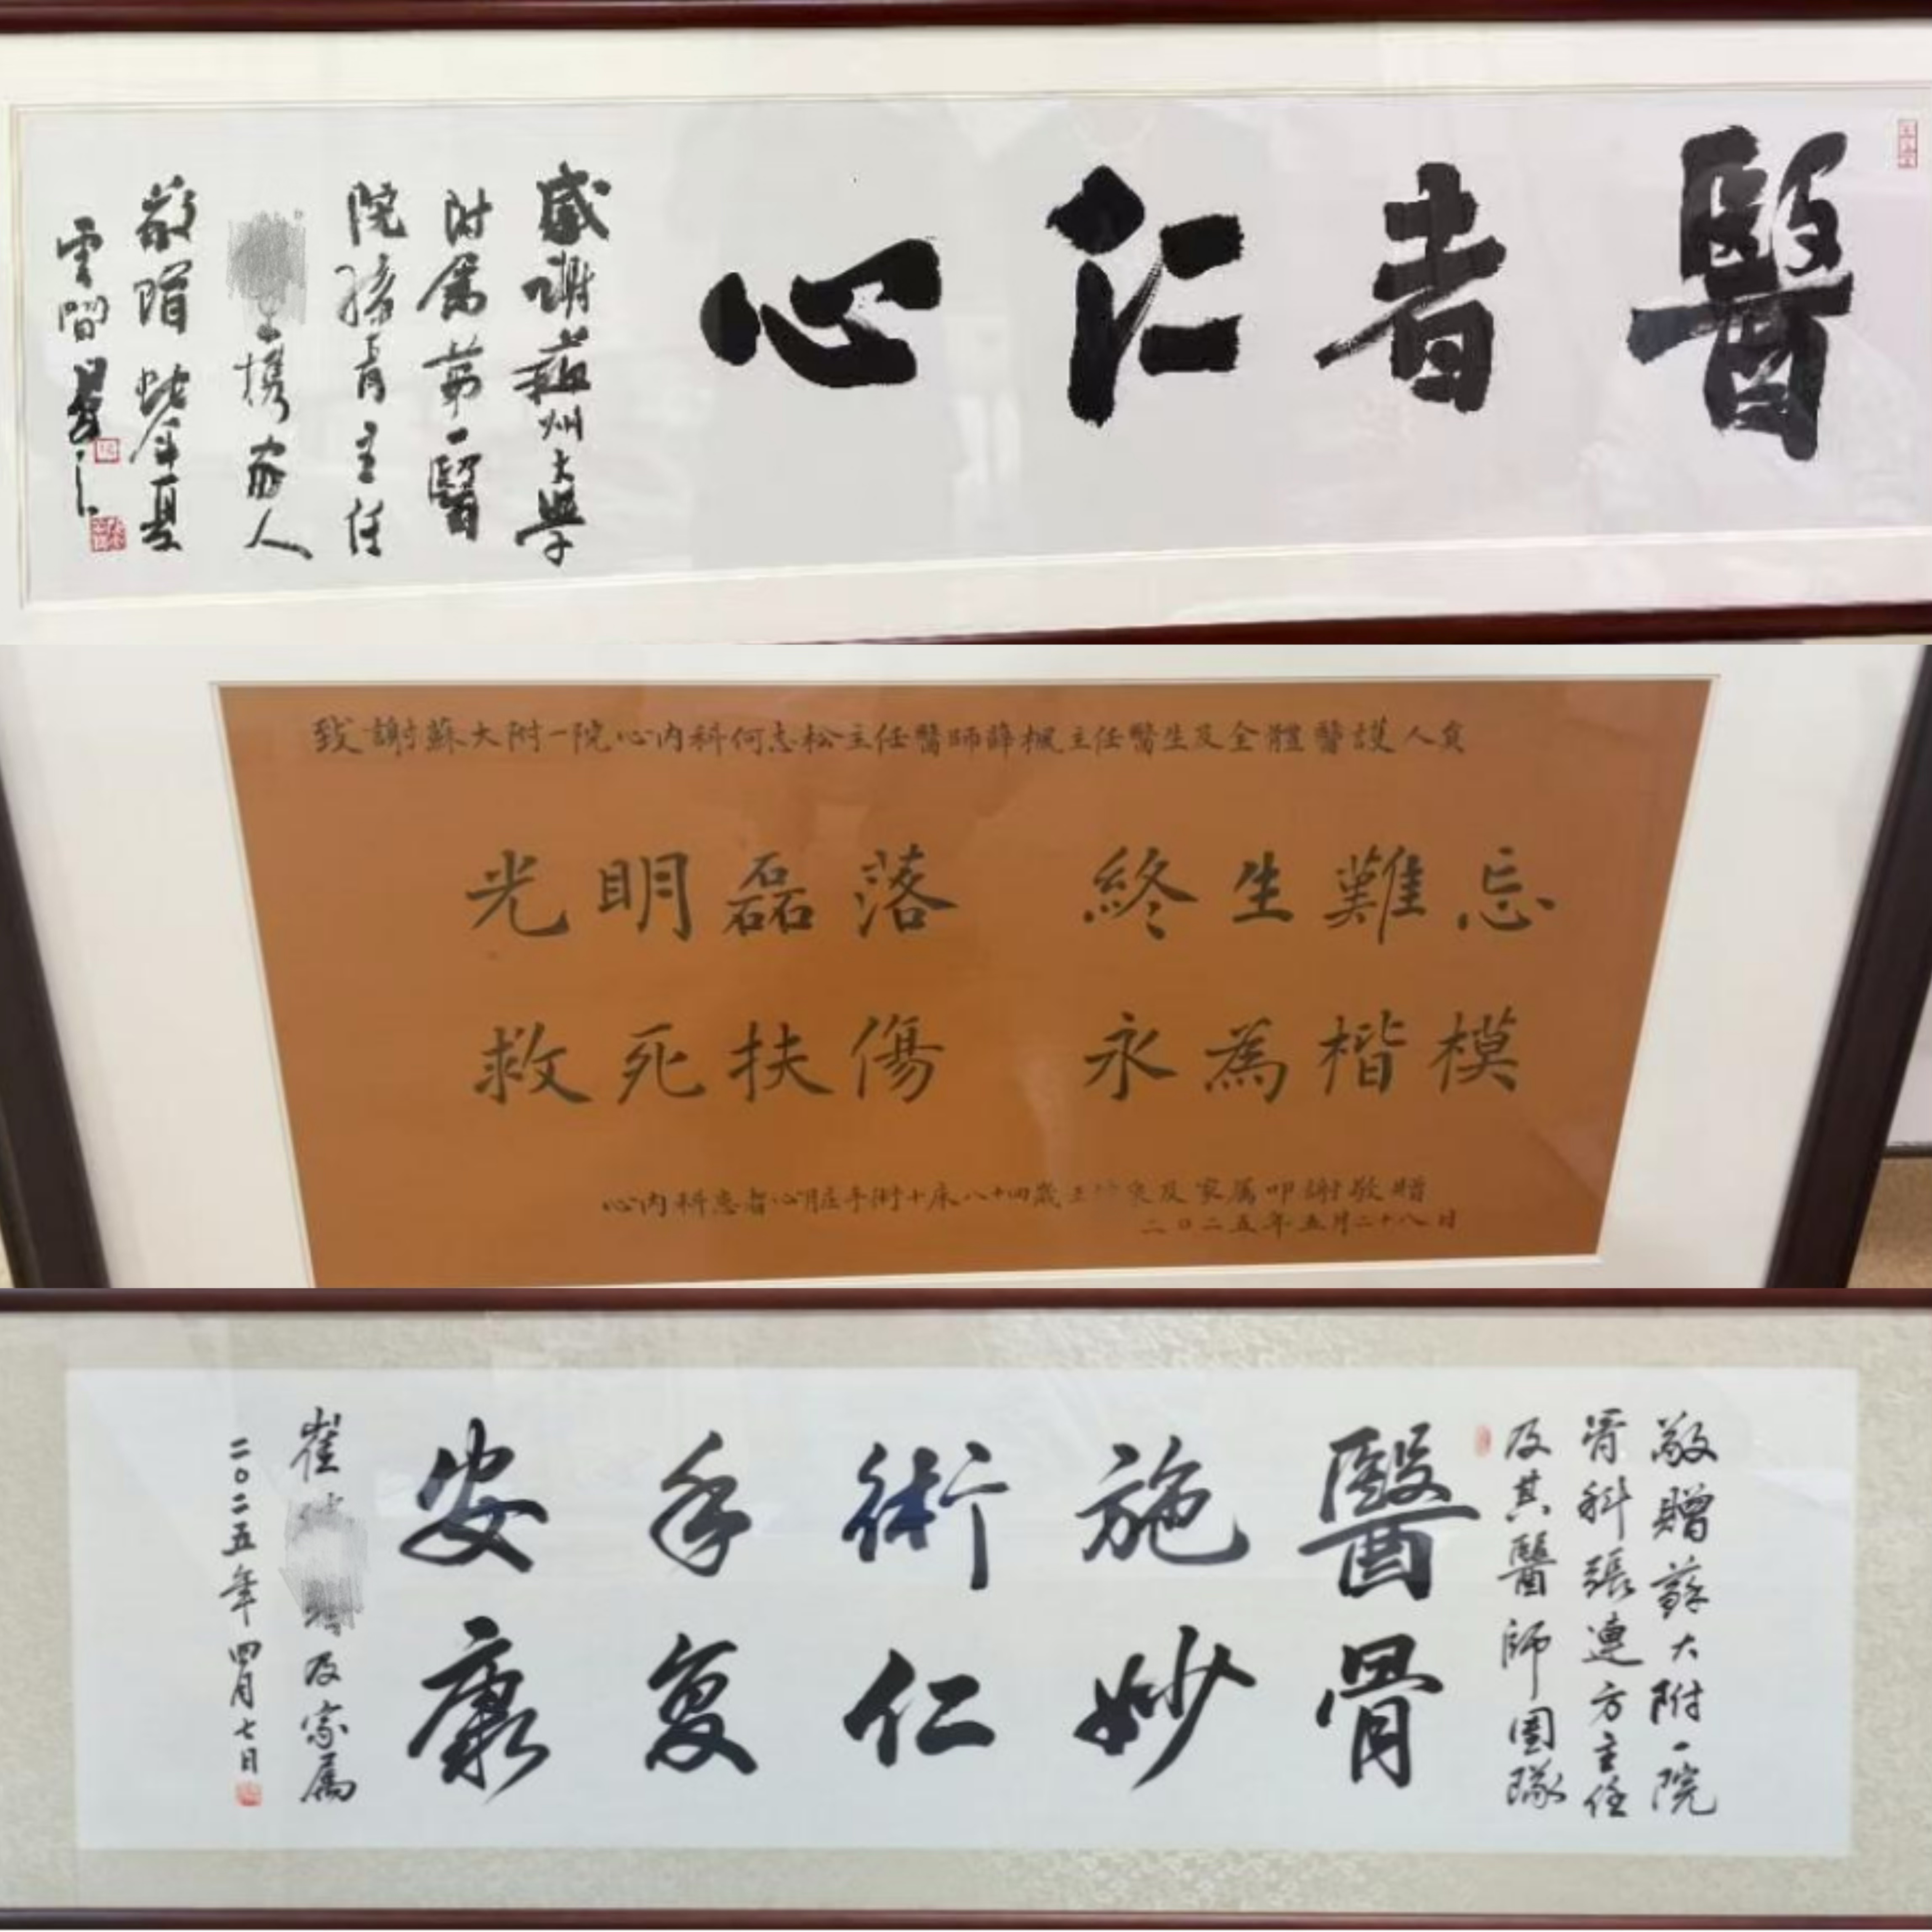 醫者仁心
感謝蘇州大學
附屬第一醫
院孫青主任
攜家人
敬贈 蛇年夏
雲間
致謝蘇大附一院心内科何志松主任醫師薛楓主任醫生及全體醫護人員
光明磊落 終生難忘
救死扶傷 永為楷模
心内科患者心脏手術十床八十四歲王 及家属叩謝敬贈
二〇二五年五月二十八日
敬贈蘇大附一院
骨科張連方主任
及其醫師團隊
醫施術手安
骨妙仁复康
崔 及家属
二〇二五年四月七日